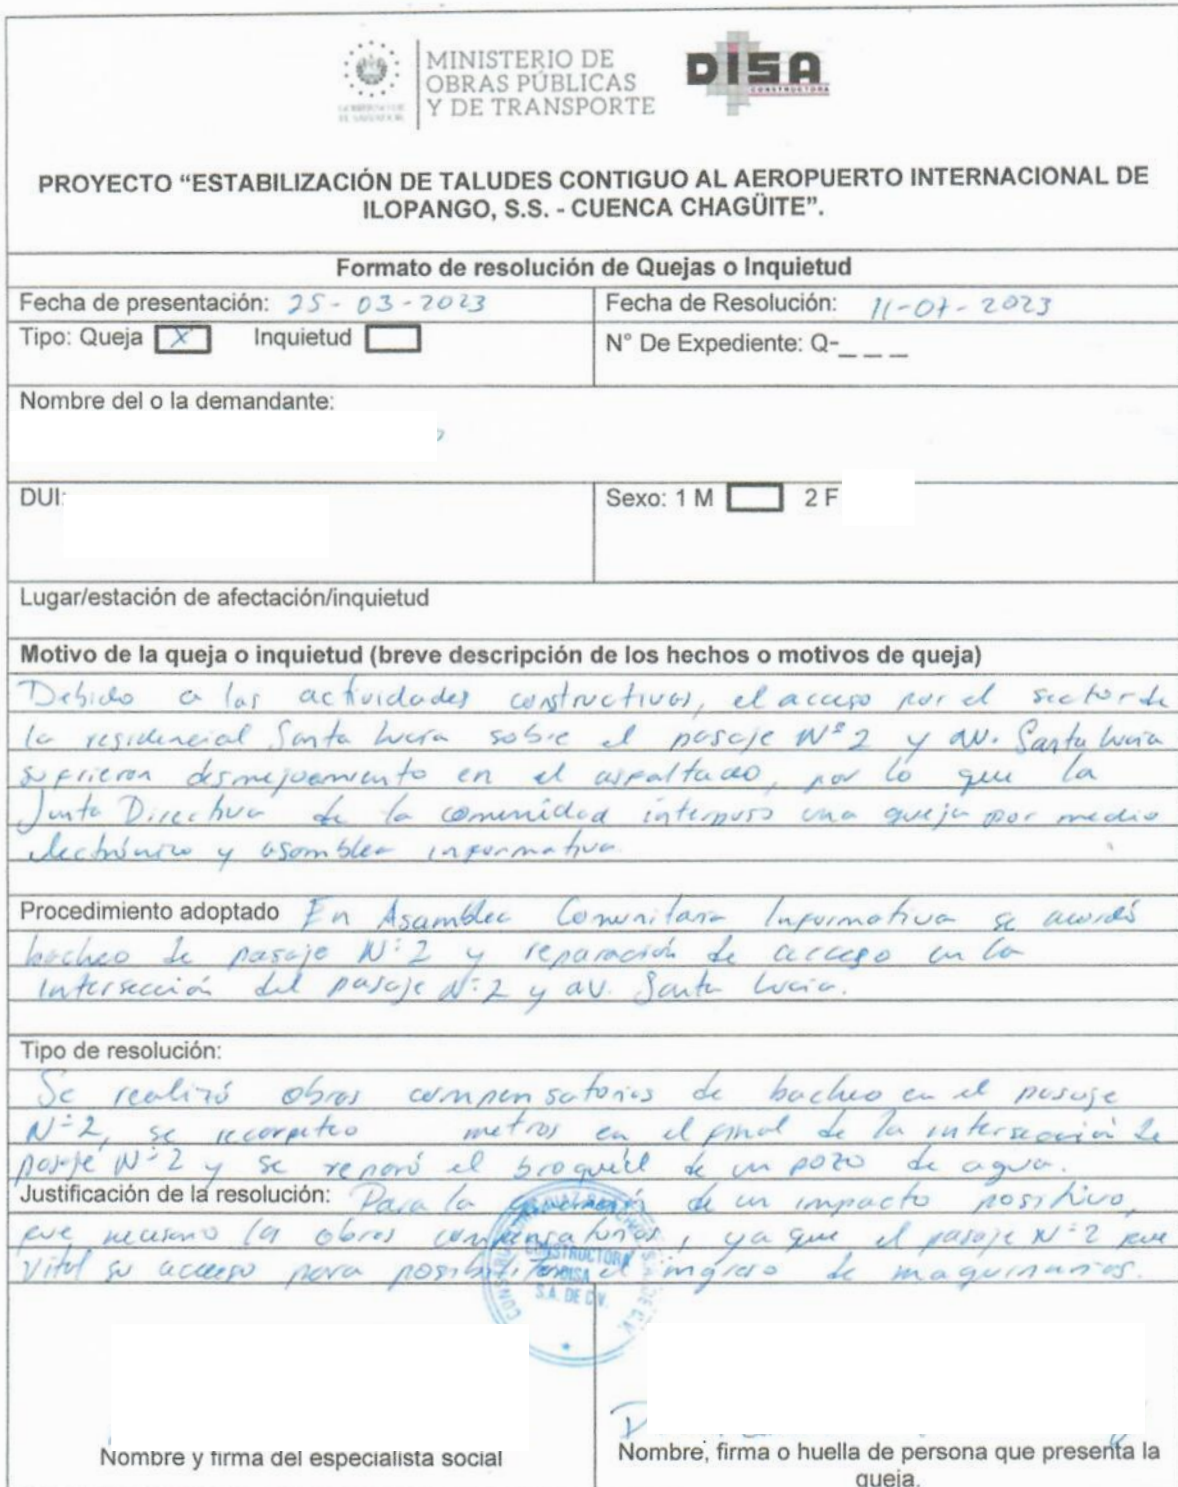 GOBIERNO DE
EL SALVADOR
MINISTERIO DE
OBRAS PÚBLICAS
Y DE TRANSPORTE
DISA
CONSTRUCTORA
PROYECTO “ESTABILIZACIÓN DE TALUDES CONTIGUO AL AEROPUERTO INTERNACIONAL DE
ILOPANGO, S.S. - CUENCA CHAGÜITE”.
Formato de resolución de Quejas o Inquietud
Fecha de presentación: 25-03-2023
Fecha de Resolución: 11-07-2023
Tipo: Queja X Inquietud
N° De Expediente: Q-_ _ _
Nombre del o la demandante:
DUI:
Sexo: 1 M 2 F
Lugar/estación de afectación/inquietud
Motivo de la queja o inquietud (breve descripción de los hechos o motivos de queja)
Debido a las actividades constructivas, el acceso por el sector de
la residencial Santa Lucía sobre el pasaje N°2 y av. Santa Lucia
sufrieron desmejoramiento en el asfaltado, por lo que la
Junta Directiva de la comunidad interpuso una queja por medio
electrónico y asamblea informativa.
Procedimiento adoptado En Asamblea Comunitaria Informativa se acordó
bacheo de pasaje N°2 y reparación de acceso en la
intersección del pasaje N°2 y av. Santa Lucia.
Tipo de resolución:
Se realizó obras compensatorias de bacheo en el pasaje
N°2, se recarpeteo metros en el final de la intersección de
pasaje N°2 y se reparó el broquel de un pozo de agua.
Justificación de la resolución: Para la de un impacto positivo,
fue necesario las obras compensatorias, ya que el pasaje N°2 fue
vital su acceso para posibilitar el ingreso de maquinarias.
CONSTRUCTORA
DISA
S.A. DE C.V.
Nombre y firma del especialista social
Nombre, firma o huella de persona que presenta la
queja.